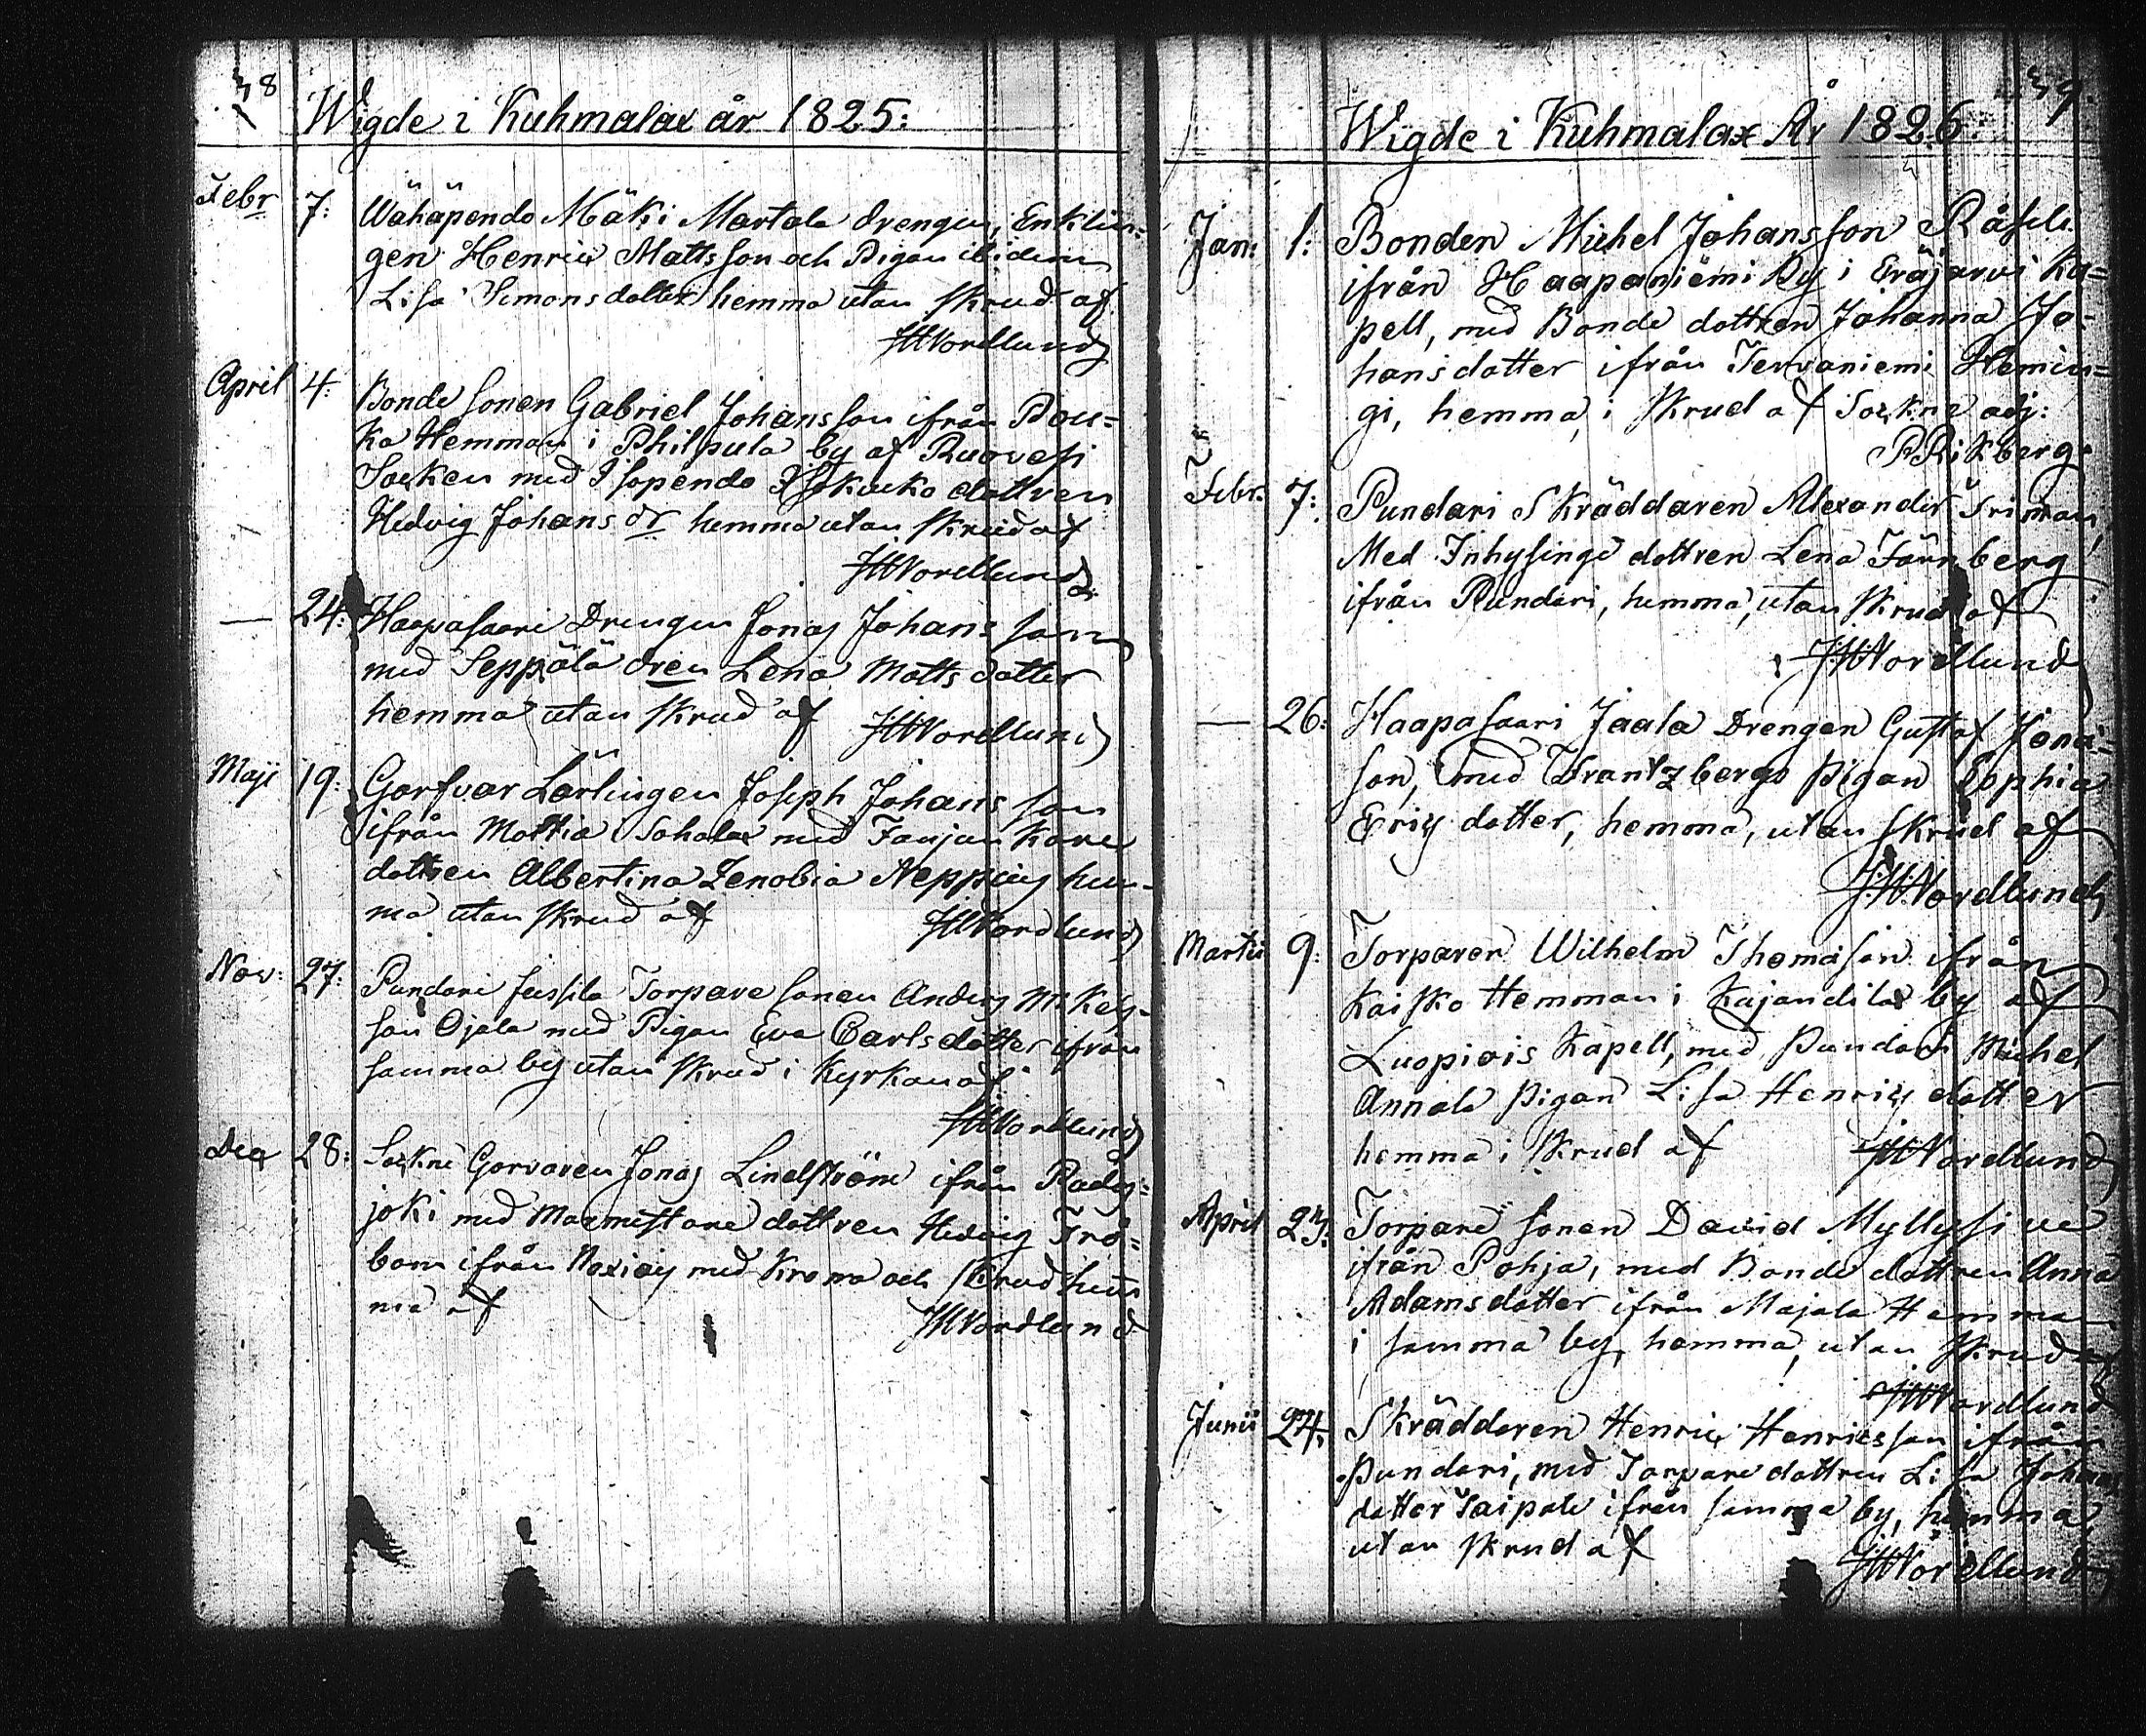 38
Wigde i Kuhmalax år 1825:
Febr 7: Wähäpendo Mäki Martola drengen, Enklin=
gen Henric Mattsson och Pigan ibidem
Lisa Simonsdotter hemma utan skrud af
JHNordlund
April 4: Bonde sonen Gabriel Johansson ifrån Pou=
ka Hemman i Philpula by af Ruovesi
Socken med Isopendo dottren
Hedvig Johans dr hemma utan skrud af
JHNordlund
— 24: Haapasaari Drengen Jonas Johansson
med Seppälä dren Lena Matts dotter
hemma utan skrud af JHNordlund
Maji 19: Garfvar Lärlingen Joseph Johansson
ifrån Mattia Sahalax med Fanjunkare
dottren Albertina Zenobia Nepping hem-
ma utan skrud af JHNordlund
Nov: 27: Pundari Jussila Torpare sonen Anders Mickels-
son Ojala med Pigan Eva Carlsdotter ifrån
samma by utan skrud i Kyrkan af
JHNordlund
Dec 28: Sockne Garvaren Jonas Lindström ifrån
joki med dottren Hedvig Frö=
bom ifrån med Krona och skrud hem
ma af JHNordlund
39
Wigde i Kuhmalax År 1826:
Jan: 1: Bonden Michel Johansson Råsila
ifrån Haapaniemi By i Eräjärvi Ka=
pell, med Bonde dottren Johanna Jo-
hansdotter ifrån Tervaniemi Hemin=
gi, hemma, i skrud af Sockne adj:
Rikberg.
Febr. 7: Pundari Skräddaren Alexander Friman,
Med Inhysinge dottren Lena Färnberg
ifrån Pundari, hemma, utan skrud af
JHNordlund
— 26: Haapasaari Jaala Drengen Gustaf Jona-
son, med Frantzbergs Pigan Sophia
Erics dotter, hemma, utan skrud af
JHNordlund
Martii 9: Torparen Wilhelm Thomasson ifrån
Kaisko Hemman i Kajandila by af
Luopiois Kapell, med Pundari Michel
Annala Pigan Lisa Henrics dotter
hemma i skrud af JHNordlund
April 23: Torpare sonen David Myllysilta
ifrån Pohja, med Bonde dottren Anna
Adamsdotter ifrån Majala Hemman
i samma by, hemma, utan skrud af
JHNordlund
Junii 24: Skräddaren Henric Henricsson ifrån
Pundari, med Torpare dottren Lisa Johans
dotter Taipale ifrån samma by, hemma,
utan skrud af JHNordlund